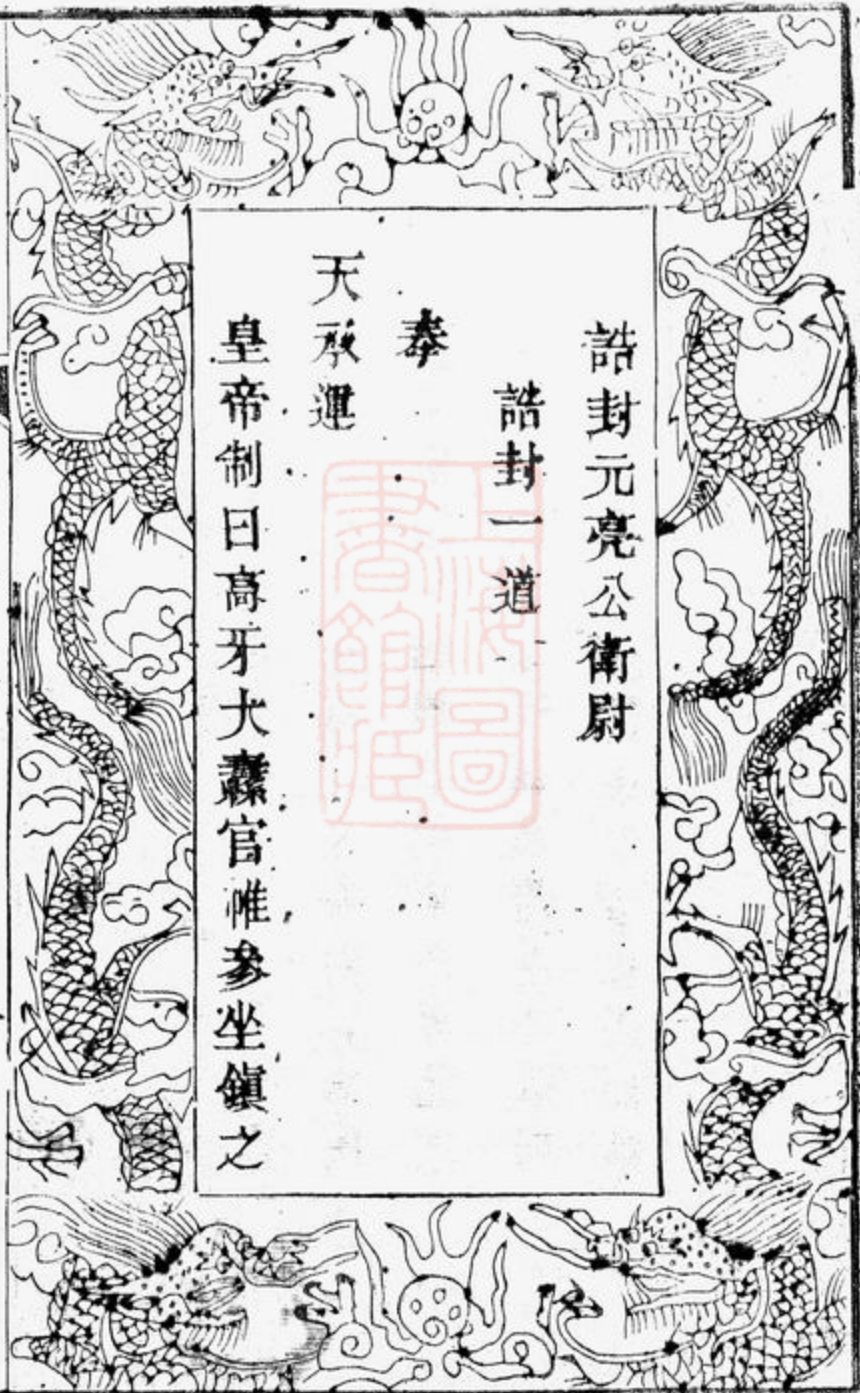 誥封元亮公衛尉
誥封一道
奉
天承運
皇帝制曰高牙大纛官惟參坐鎮之
上海圖書館藏